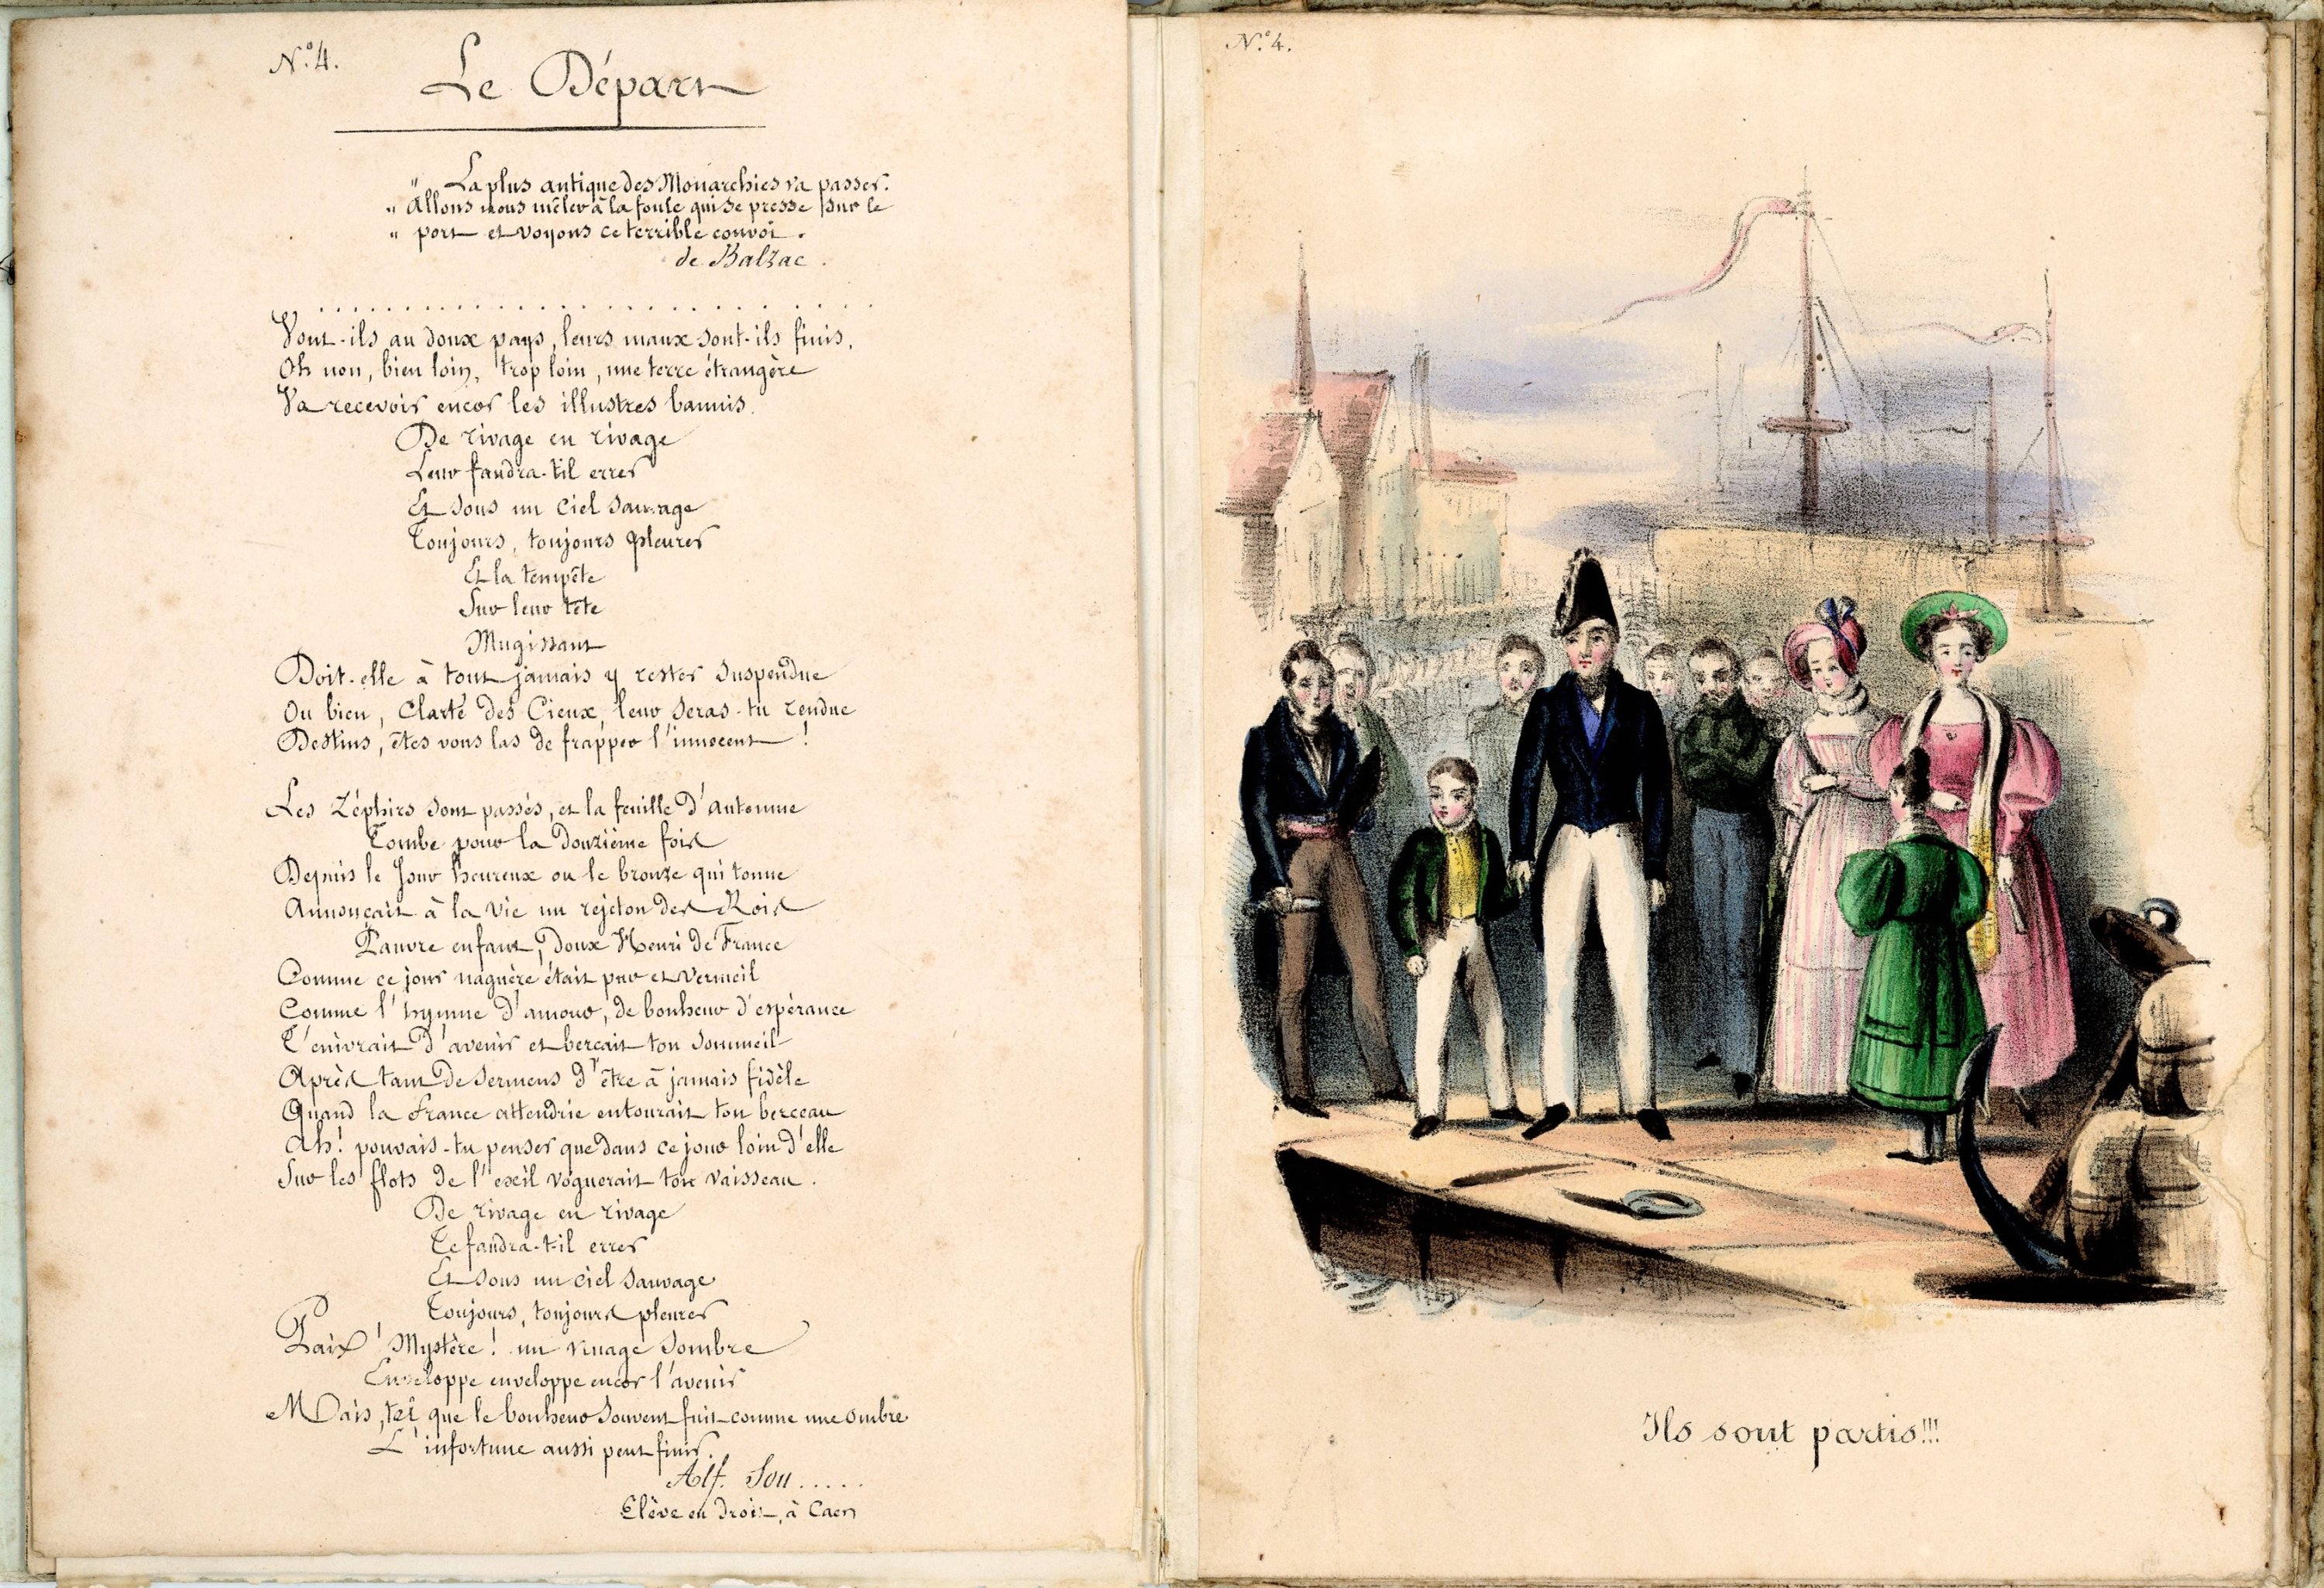 N.° 4.
Le Départ
" La plus antique des Monarchies va passer.
" Allons nous mêler à la foule qui se presse sur le
" port et voyons ce terrible convoi.
de Balzac.
Vont-ils au doux pays, leurs maux sont-ils finis,
Oh non, bien loin, trop loin, une terre étrangère
Va recevoir encor les illustres bannis.
De rivage en rivage
Leur faudra-t-il errer
Et sous un ciel sauvage
Toujours, toujours pleurer
Et la tempête
Sur leur tête
Mugissant
Doit-elle à tout jamais y rester suspendue
Ou bien, Clarté des Cieux, leur seras-tu rendue
Destins, êtes vous las de frapper l'innocent !
Les Zéphirs sont passés, et la feuille d'Automne
Tombe pour la douzième fois
Depuis le Jour heureux ou le bronze qui tonne
Annonçait à la vie un rejeton des Rois
Pauvre enfant, doux Henri de France
Comme ce jour naguère était pur et vermeil
Comme l'hymne d'amour, de bonheur d'espérance
T'enivrait d'avenir et berçait ton sommeil
Après tant de sermens d'être à jamais fidèle
Quand la France attendrie entourait ton berceau
Ah! pouvais-tu penser que dans ce jour loin d'elle
Sur les flots de l'exil voguerait ton vaisseau.
De rivage en rivage
Te faudra-t-il errer
Et sous un ciel sauvage
Toujours, toujours pleurer
Paix ! Mystère ! un nuage sombre
Enveloppe enveloppe encor l'avenir
Mais, tel que le bonheur souvent fuit comme une ombre
L'infortune aussi peut finir.
Alf. Sou.....
Elève en droit, à Caen
N.° 4.
Ils sont partis!!!